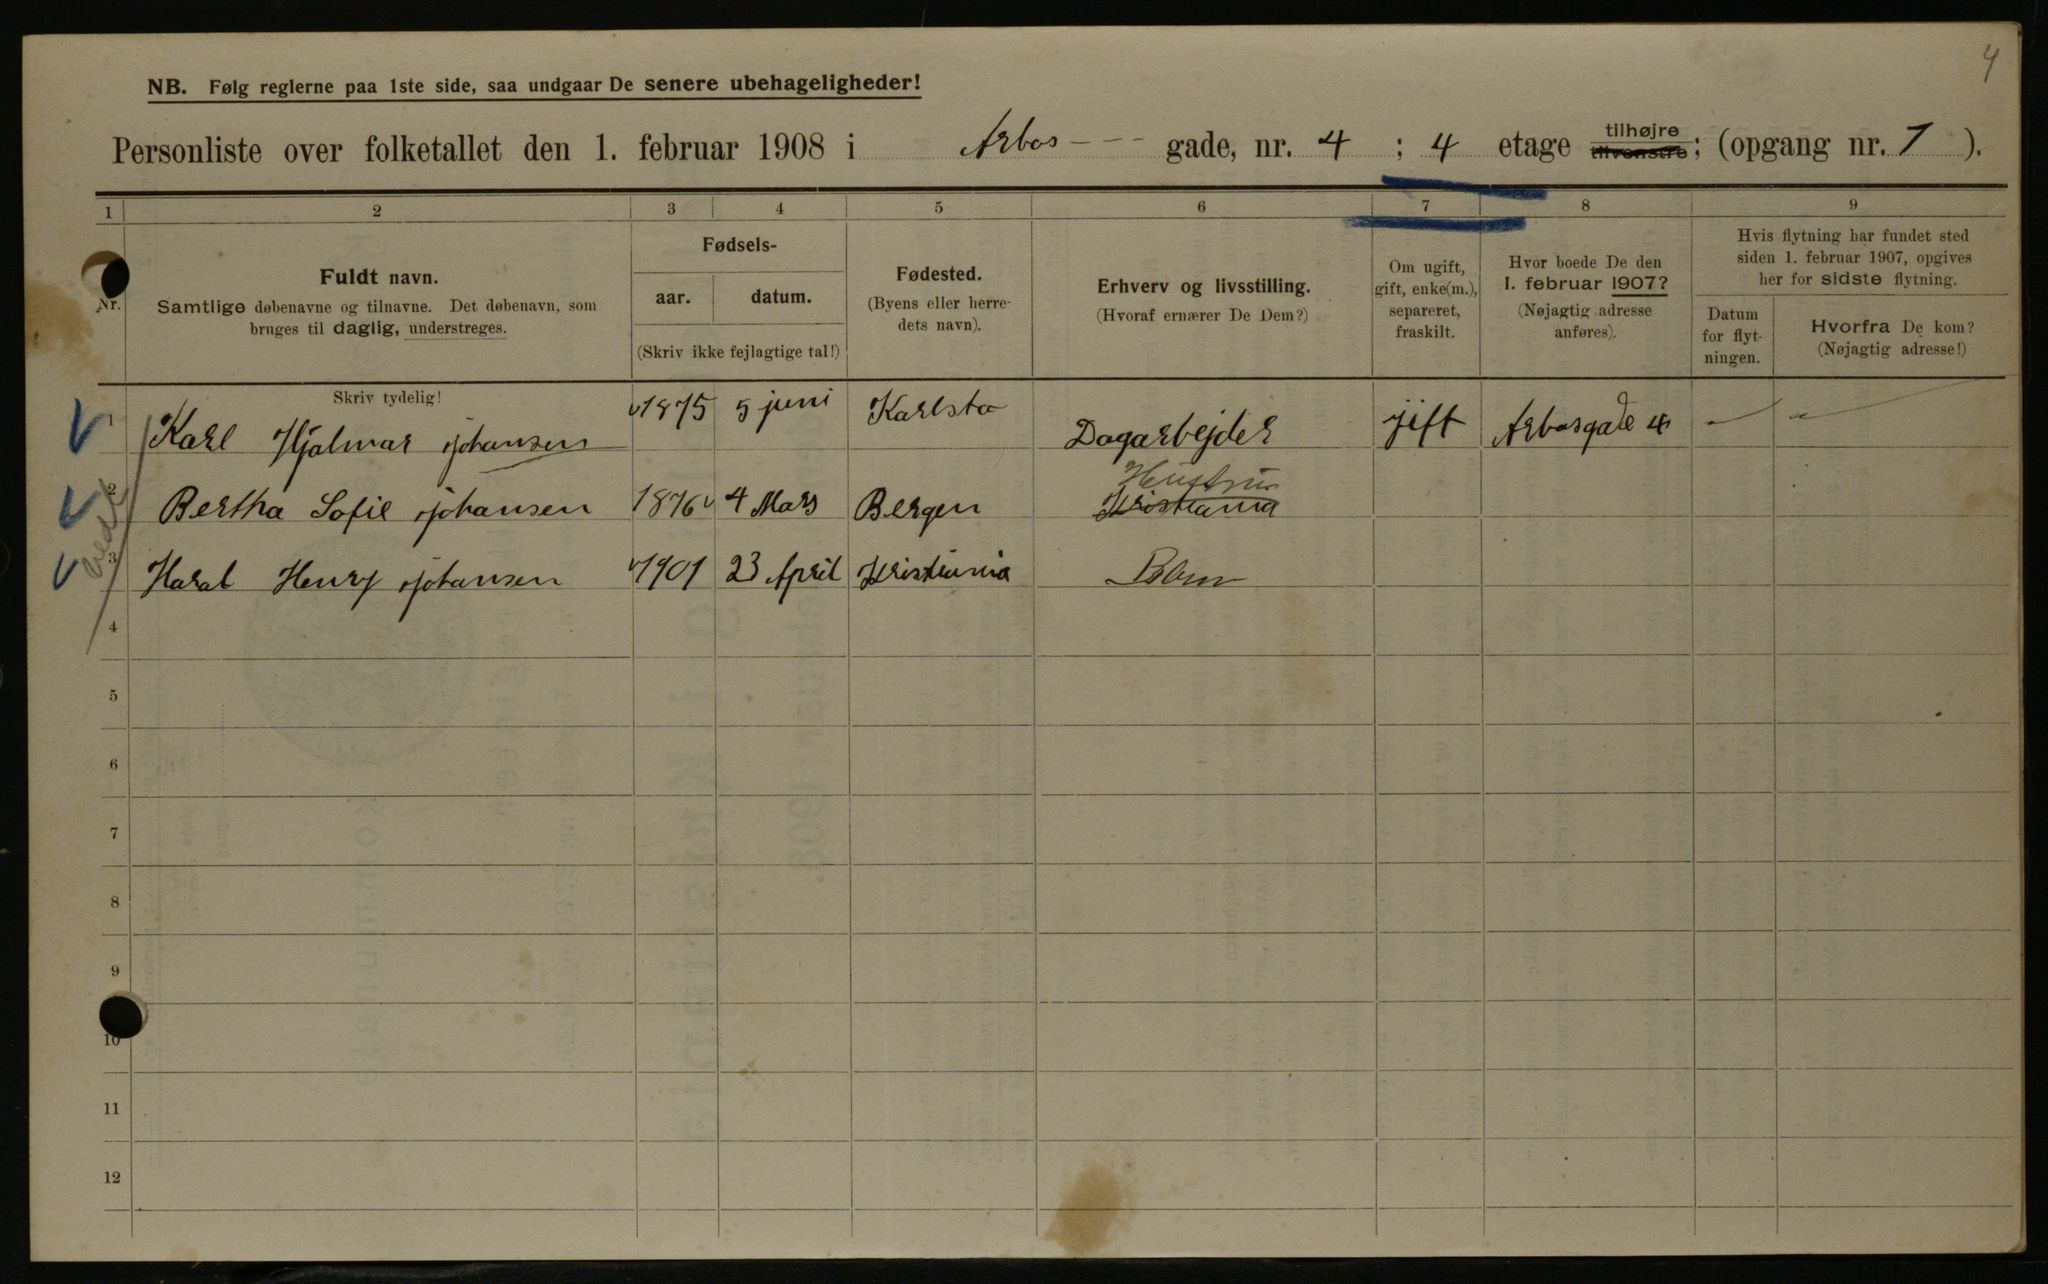 4
NB. Følg reglerne paa 1ste side, saa undgaar De senere ubehageligheder!
Personliste over folketallet den 1. februar 1908 i Arbos - - - gade, nr. 4 ; 4 etage tilhøjre tilvenstre; (opgang nr. 1 ).
1 2 3 4 5 6 7 8 9
Nr.
Fuldt navn.
Samtlige døbenavne og tilnavne. Det døbenavn, som
bruges til daglig, understreges.
Fødsels-
aar. datum.
(Skriv ikke fejlagtige tal!)
Fødested.
(Byens eller herre-
dets navn).
Erhverv og livsstilling.
(Hvoraf ernærer De Dem?)
Om ugift,
gift, enke(m.),
separeret,
fraskilt.
Hvor boede De den
1. februar 1907?
(Nøjagtig adresse
anføres).
Hvis flytning har fundet sted
siden 1. februar 1907, opgives
her for sidste flytning.
Datum
for flyt-
ningen.
Hvorfra De kom?
(Nøjagtig adresse!)
Skriv tydelig!
1 Karl Hjalmar Johansen 1875 5 juni Karlsta Dagarbejder jift Arbosgade 4 - -
2 Bertha Sofie Johansen 1876 4 Mars Bergen Kristiania Hustru
3 Haral Henry Johansen 1901 23 April Kristiania Barn
4
5
6
7
8
9
10
11
12